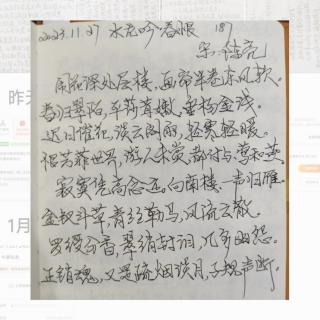 2023.11.27 水龙吟春恨
宋·陈亮
闹花深处层楼。画帘半卷东风软。
春归翠陌，平莎茸嫩，垂杨金浅。
迟日催花，淡云阁雨，轻寒轻暖。
恨芳菲世界，游人未赏，都付与、莺和燕。
寂寞凭高念远，向南楼一声归雁。
金钗斗草，青丝勒马，风流云散。
罗绶分香，翠绡封泪，几多幽怨。
正销魂，又是疏烟淡月，子规声断。
1月